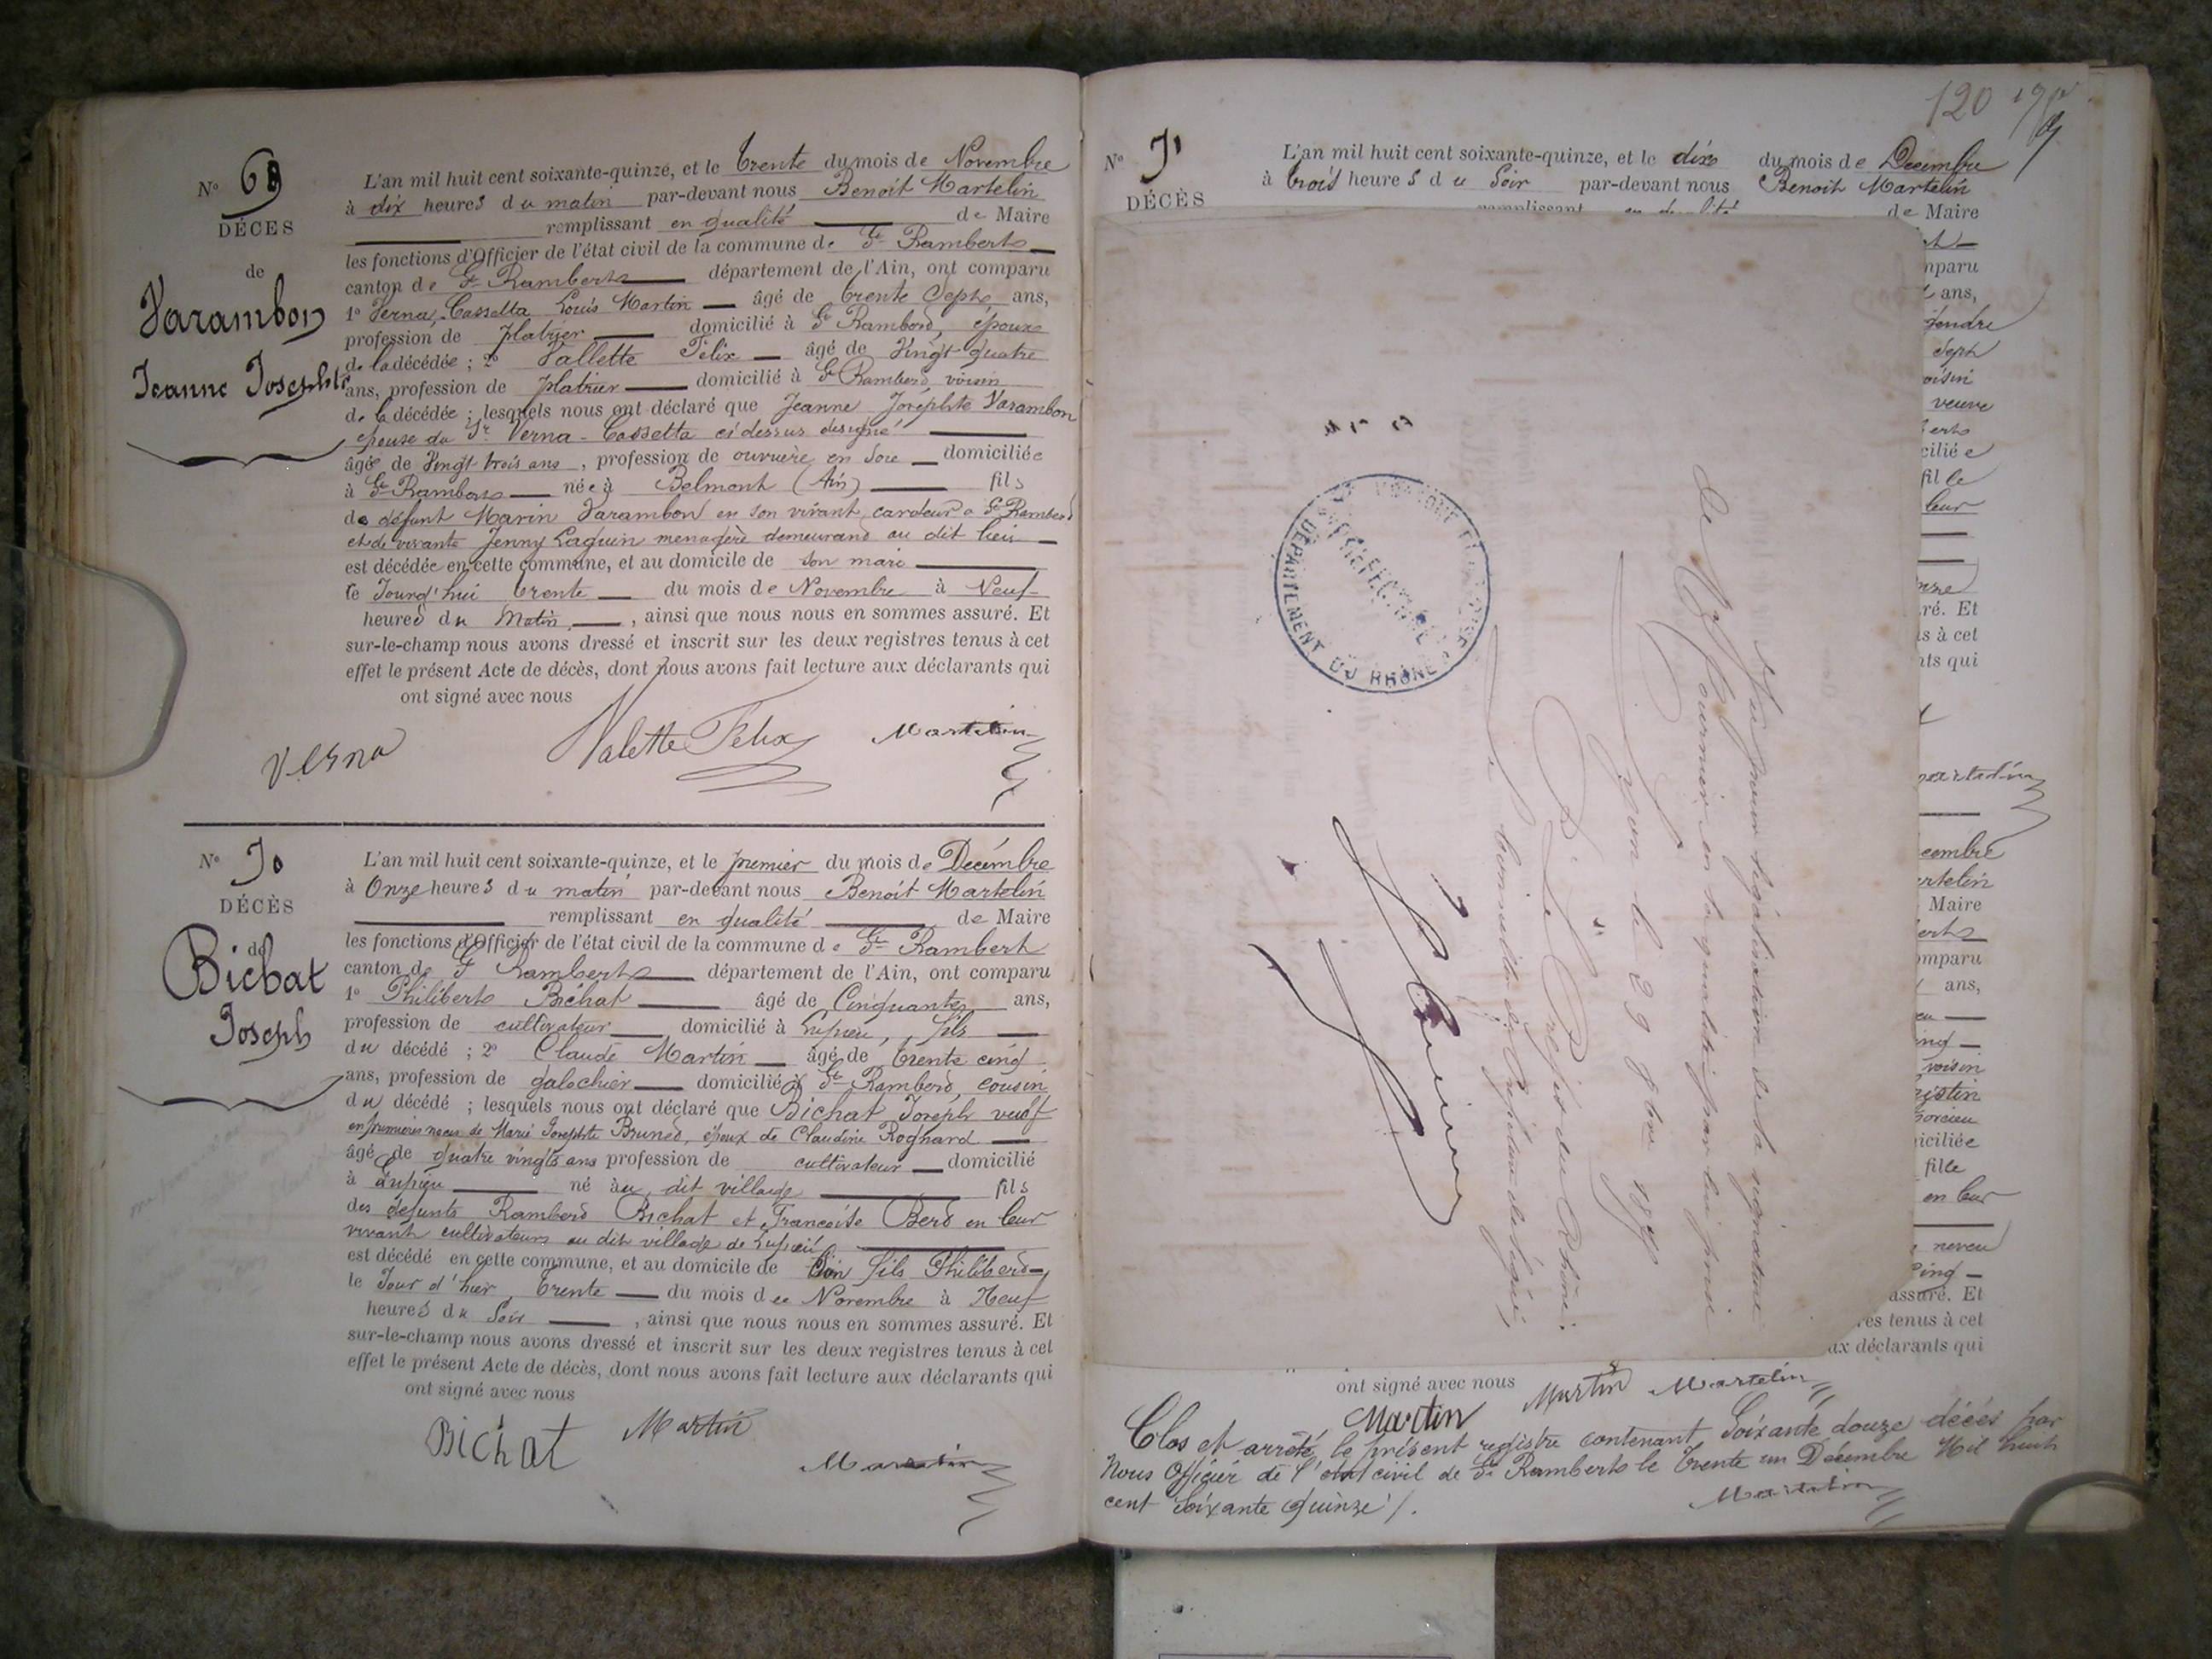 N° 69
DÉCES
de
Varambon
Jeanne Josephte
L'an mil huit cent soixante-quinze, et le trente du mois de Novembre
à dix heures du matin par-devant nous Benoit Martelin
remplissant en qualité de Maire
les fonctions d'Officier de l'état civil de la commune de St Rambert
canton de St Rambert département de l'Ain, ont comparu
1° Verna-Cassetta Louis Martin âgé de trente sept ans,
profession de platrier domicilié à St Rambert, époux
de la décédée ; 2° Vallette Félix âgé de vingt quatre
ans, profession de platrier domicilié à St Rambert, voisin
de la décédée ; lesquels nous ont déclaré que Jeanne Josephte Varambon
épouse du Sr Verna-Cassetta ci dessus designé
âgée de vingt trois ans, profession de ouvrière en soie domiciliée
à St Rambert née à Belmont (Ain) fils
de défunt Marin Varambon en son vivant cardeur a St Rambert
et de vivante Jenny Laguin menagère demeurand au dit lieu
est décédée en cette commune, et au domicile de son mari
le Jourd'hui trente du mois de Novembre à Neuf
heures du Matin, ainsi que nous nous en sommes assuré. Et
sur-le-champ nous avons dressé et inscrit sur les deux registres tenus à cet
effet le présent Acte de décès, dont nous avons fait lecture aux déclarants qui
ont signé avec nous
Verna Valette Felix Martelin
N° 70
DÉCÈS
de
Bichat
Joseph
L'an mil huit cent soixante-quinze, et le premier du mois de Decémbre
à Onze heures du matin par-devant nous Benoit Martelin
remplissant en qualité de Maire
les fonctions d'Officier de l'état civil de la commune de St Rambert
canton de St Rambert département de l'Ain, ont comparu
1° Philibert Bichat âgé de Cinquante ans,
profession de cultivateur domicilié à Lupieu, fils
du décédé ; 2° Claude Martin âgé de trente cinq
ans, profession de galochier domicilié à St Rambert, cousin
du décédé ; lesquels nous ont déclaré que Bichat Joseph veuf
en premieres noces de Marie Josephte Brunet, époux de Claudine Rognard
âgé de quatre vingts ans profession de cultivateur domicilié
à Lupieu né au dit village fils
des défunts Rambert Bichat et Francoise Berd en leur
vivant cultivateurs au dit village de Lupieu
est décédé en cette commune, et au domicile de Son fils Philibert
le Jour d'hier, trente du mois de Novembre à Neuf
heures du Soir, ainsi que nous nous en sommes assuré. Et
sur-le-champ nous avons dressé et inscrit sur les deux registres tenus à cet
effet le présent Acte de décès, dont nous avons fait lecture aux déclarants qui
ont signé avec nous
Bichat Martin
Martelin
120
N° 71
DÉCÈS
L'an mil huit cent soixante-quinze, et le dix du mois de Decembre
à trois heures du Soir par-devant nous Benoit Martelin
remplissant en qualité de Maire
mparu
ans,
gendre
Sept
oisin
veuve
ciliée
fille
leur
ré. Et
s à cet
nts qui
DÉPARTEMENT DU RHÔNE
Vu pour légalisation de la signature
de Mr fournier en sa qualité par lui prise
Lyon le 29 9bre 187
P. le Préfet du Rhône:
Le Conseiller de Préfecture délégué,
cembre
rtelin
Maire
omparu
ans,
voisin
iciliée
fille
en leur
neveu
Cinq
assuré. Et
res tenus à cet
ux déclarants qui
ont signé avec nous Martin Martelin
Martin
Clos et arrêté le présent registre contenant Soixante douze décès par
Nous Officier de l'état civil de St Rambert le trente un Décembre Mil huit
cent Soixante quinze /.
Martelin